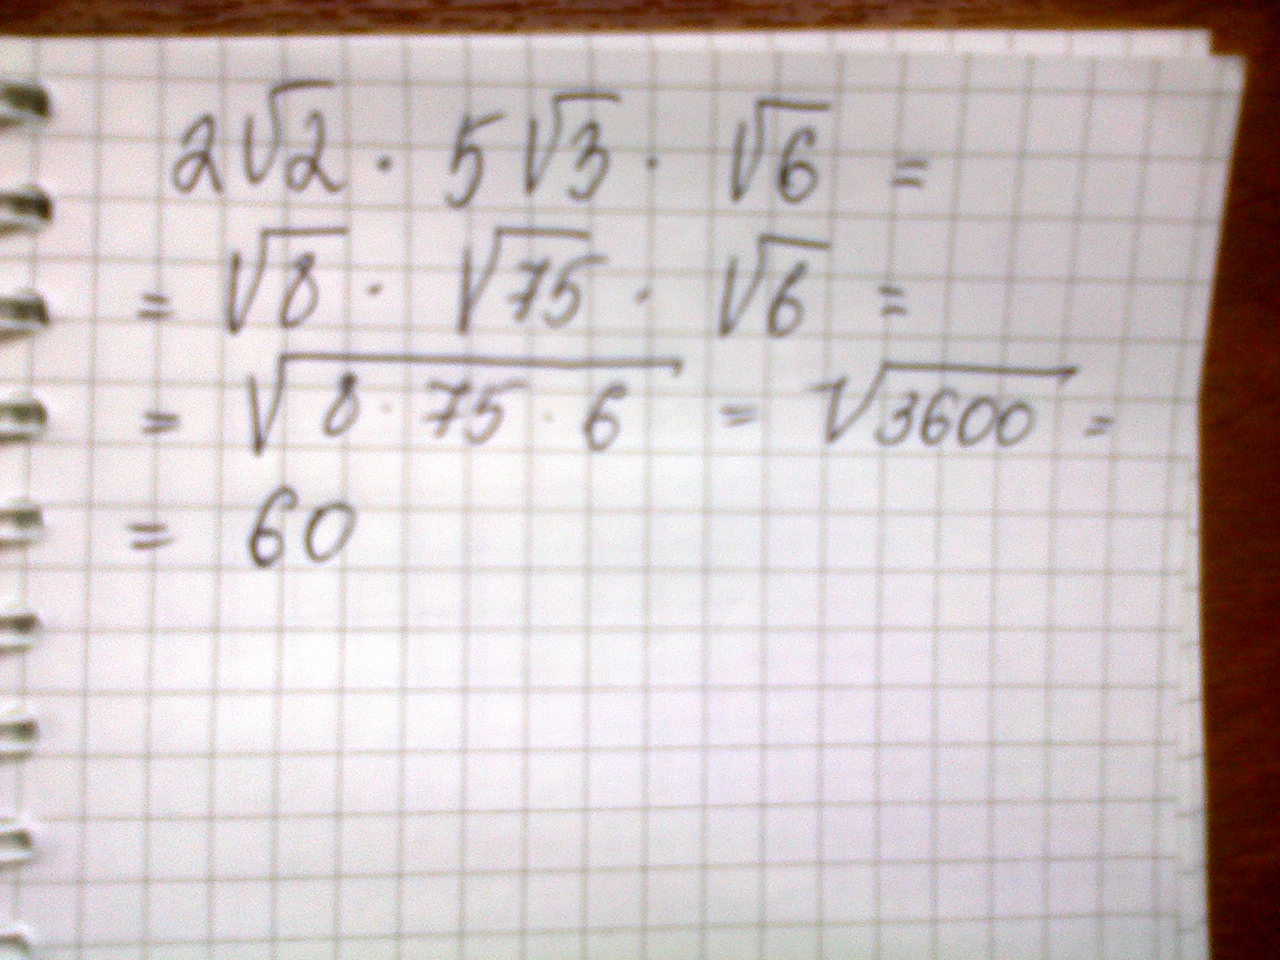 2√2 · 5√3 · √6 =
= √8 · √75 · √6 =
= √8 · 75 · 6 = √3600 =
= 60